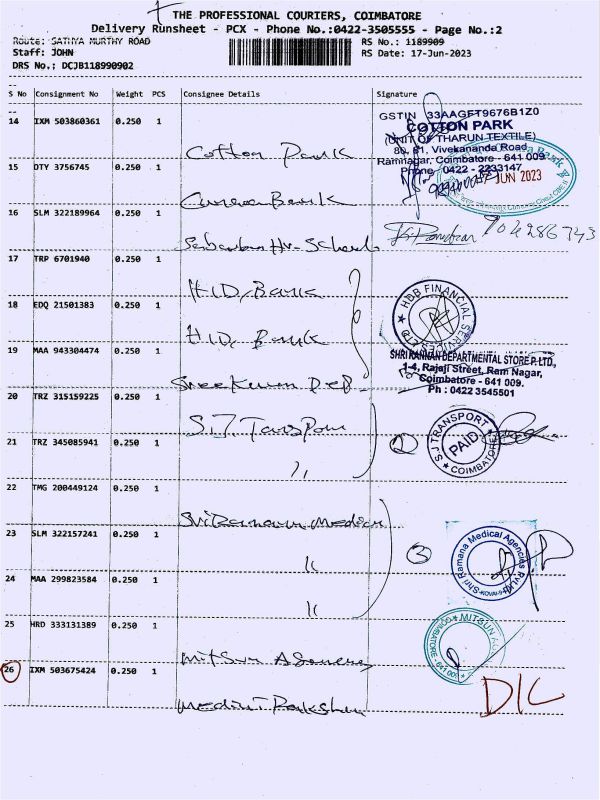 THE PROFESSIONAL COURIERS, COIMBATORE
Delivery Runsheet - PCX - Phone No.:0422-3505555 - Page No.:2
Route: SATHYA MURTHY ROAD
RS No.: 1189909
Staff: JOHN
RS Date: 17-Jun-2023
DRS No.: DCJB118990902
S No Consignment No Weight PCS Consignee Details Signature
14 IXM 503860361 0.250 1
Cotton Park
GSTIN 33AAGFT9676B1Z0
COTTON PARK
(UNIT OF THARUN TEXTILE)
80, 81, Vivekananda Road,
Ramnagar, Coimbatore - 641 009
Phone : 0422 - 2233147
15 DTY 3756745 0.250 1
Canara Bank
JUN 2023
16 SLM 322189964 0.250 1
17 TRP 6701940 0.250 1
Bank
18 EDQ 21501383 0.250 1
Bank
HDB FINANCIAL SERVICES LTD
19 MAA 943304474 0.250 1
SHRI KANNAN DEPARTMENTAL STORE P. LTD.,
1-4, Rajaji Street, Ram Nagar,
Coimbatore - 641 009.
Ph : 0422 3545501
20 TRZ 315159225 0.250 1
S.J. Transport
21 TRZ 345085941 0.250 1
"
S.J TRANSPORT
PAID
COIMBATORE
22 TMG 200449124 0.250 1
Sri Ramana Medical
23 SLM 322157241 0.250 1
"
24 MAA 299823584 0.250 1
"
Shri Ramana Medical Agencies Pvt Ltd
25 HRD 333131389 0.250 1
Mitsun Agencies
MITSUN
COIMBATORE - 641 009
26 IXM 503675424 0.250 1
D/C